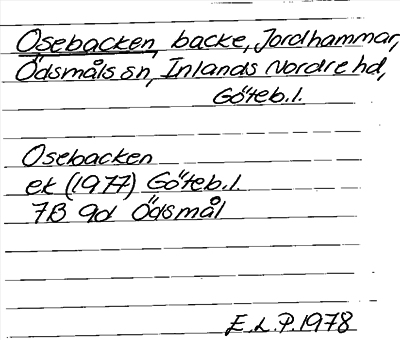 Osebacken, backe, Jordhammar,
Ödsmåls sn, Inlands Nordre hd,
Göteb.l.
Osebacken
ek (1977) Göteb.l.
7B 9d Ödsmål
E.L.P. 1978